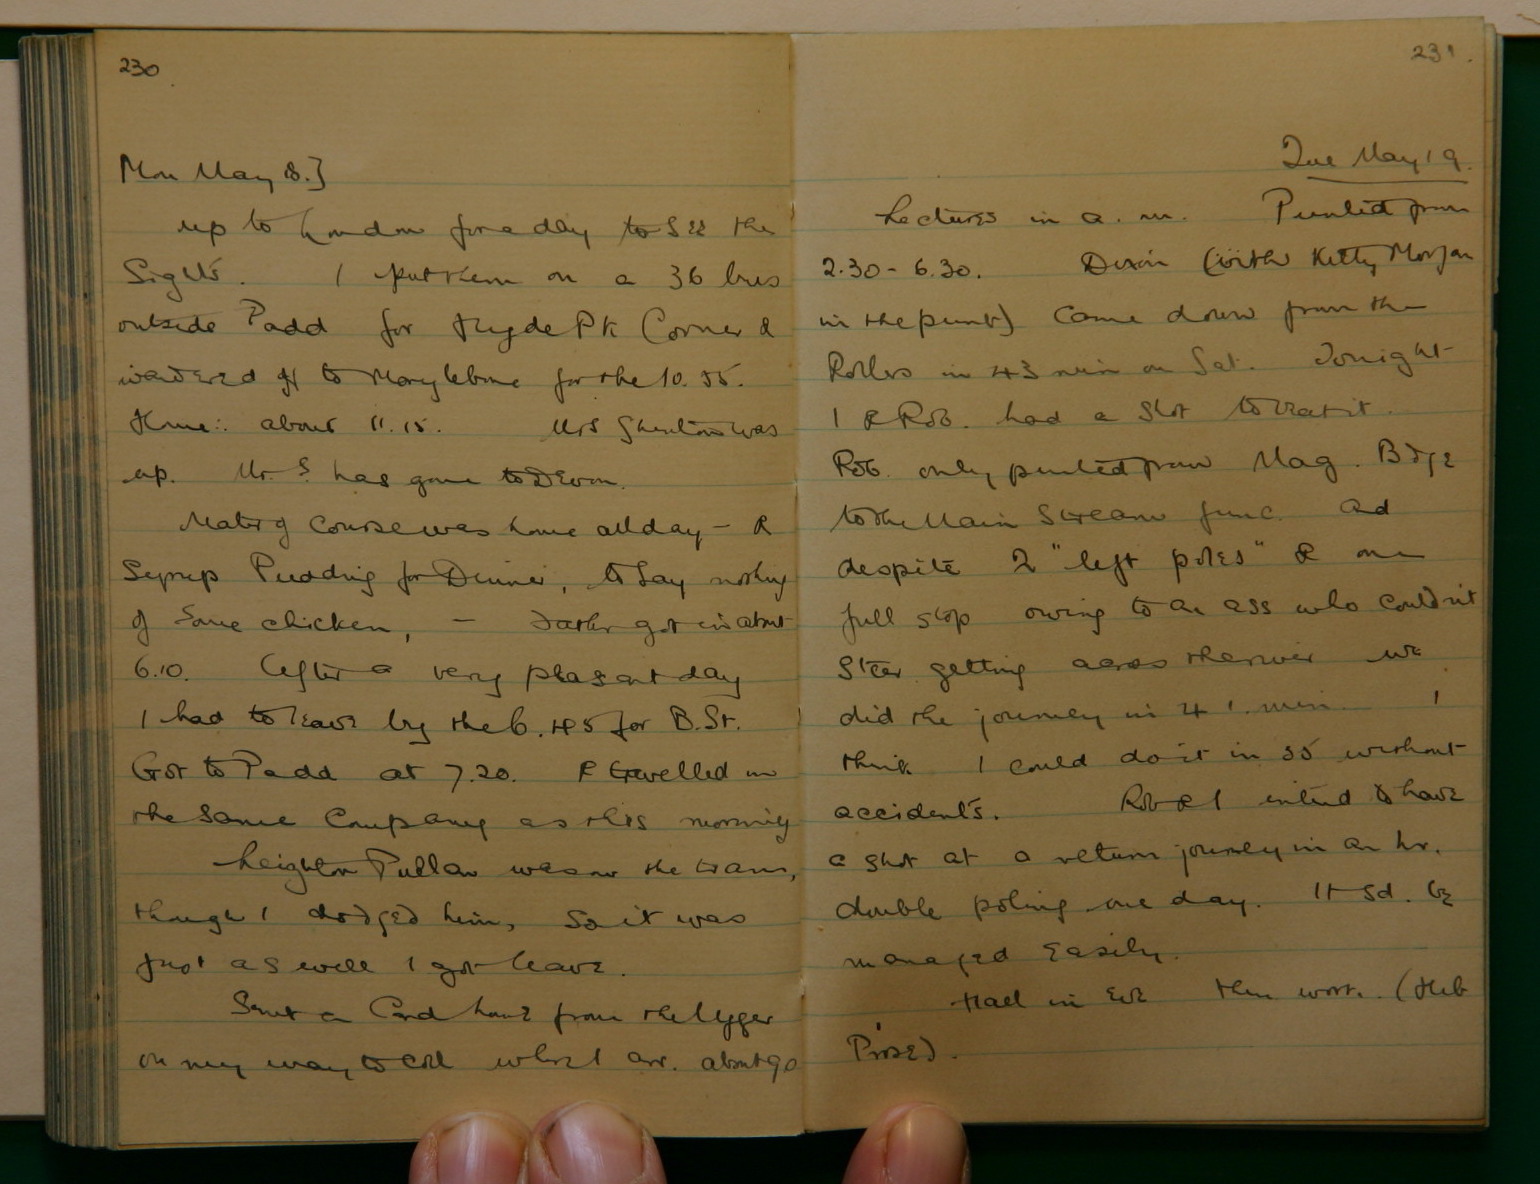 230
Mon May 18.]
up to London for a day to see the
Sights. I put them on a 36 bus
outside Padd for Hyde Pk Corner &
wandered off to Marylebone for the 10.55.
Home: about 11.15. Mrs was
up. Mr. S has gone to Devon.
Mater of course was home all day - &
Syrup Pudding for Dinner, to say nothing
of some chicken, - Father got in about
6.10. After a very pleasant day
I had to leave by the 6.45 for B.St.
Got to Padd at 7.20. & travelled in
the same Company as this morning
Leighton Pullan was on the train,
though I dodged him, so it was
just as well I got leave.
Sent a Card home from the Ugger
on my way to Coll where I arr. about 90
231.
Tue May 19.
Lectures in a.m. Punted from
2.30-6.30. Dixon (with Kitty Morgan
in the punt) came down from the
Rollers in 43 min on Sat. Tonight
I & Rob. had a shot to beat it.
Rob. only punted from Mag. Bdge
to the Main Stream func. And
despite 2 "left poles" & one
full stop owing to an ass who couldn't
steer getting across the river we
did the journey in 41. min. I
think I could do it in 35 without
accidents. Rob & I intend to have
a shot at a return journey in an hr.
double poling one day. It sd. be
managed easily.
Hall in Eve then work. (Heb
Prose).